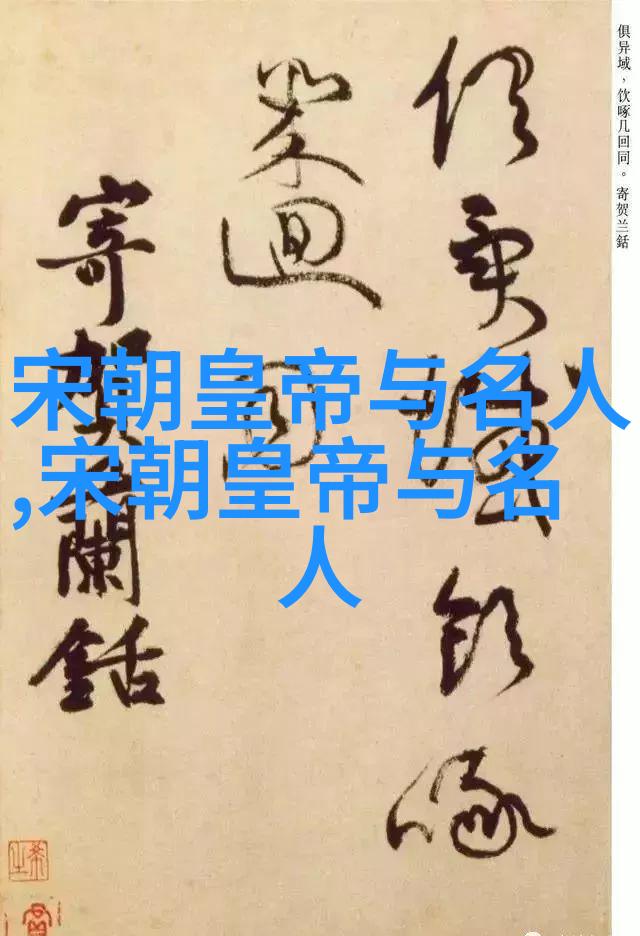 俱异域，饮啄几回同。寄贺兰銛
俱異域飲啄
幾迴同
寄賀蘭銛
宋朝皇帝与名人
,宋朝皇帝与名
人